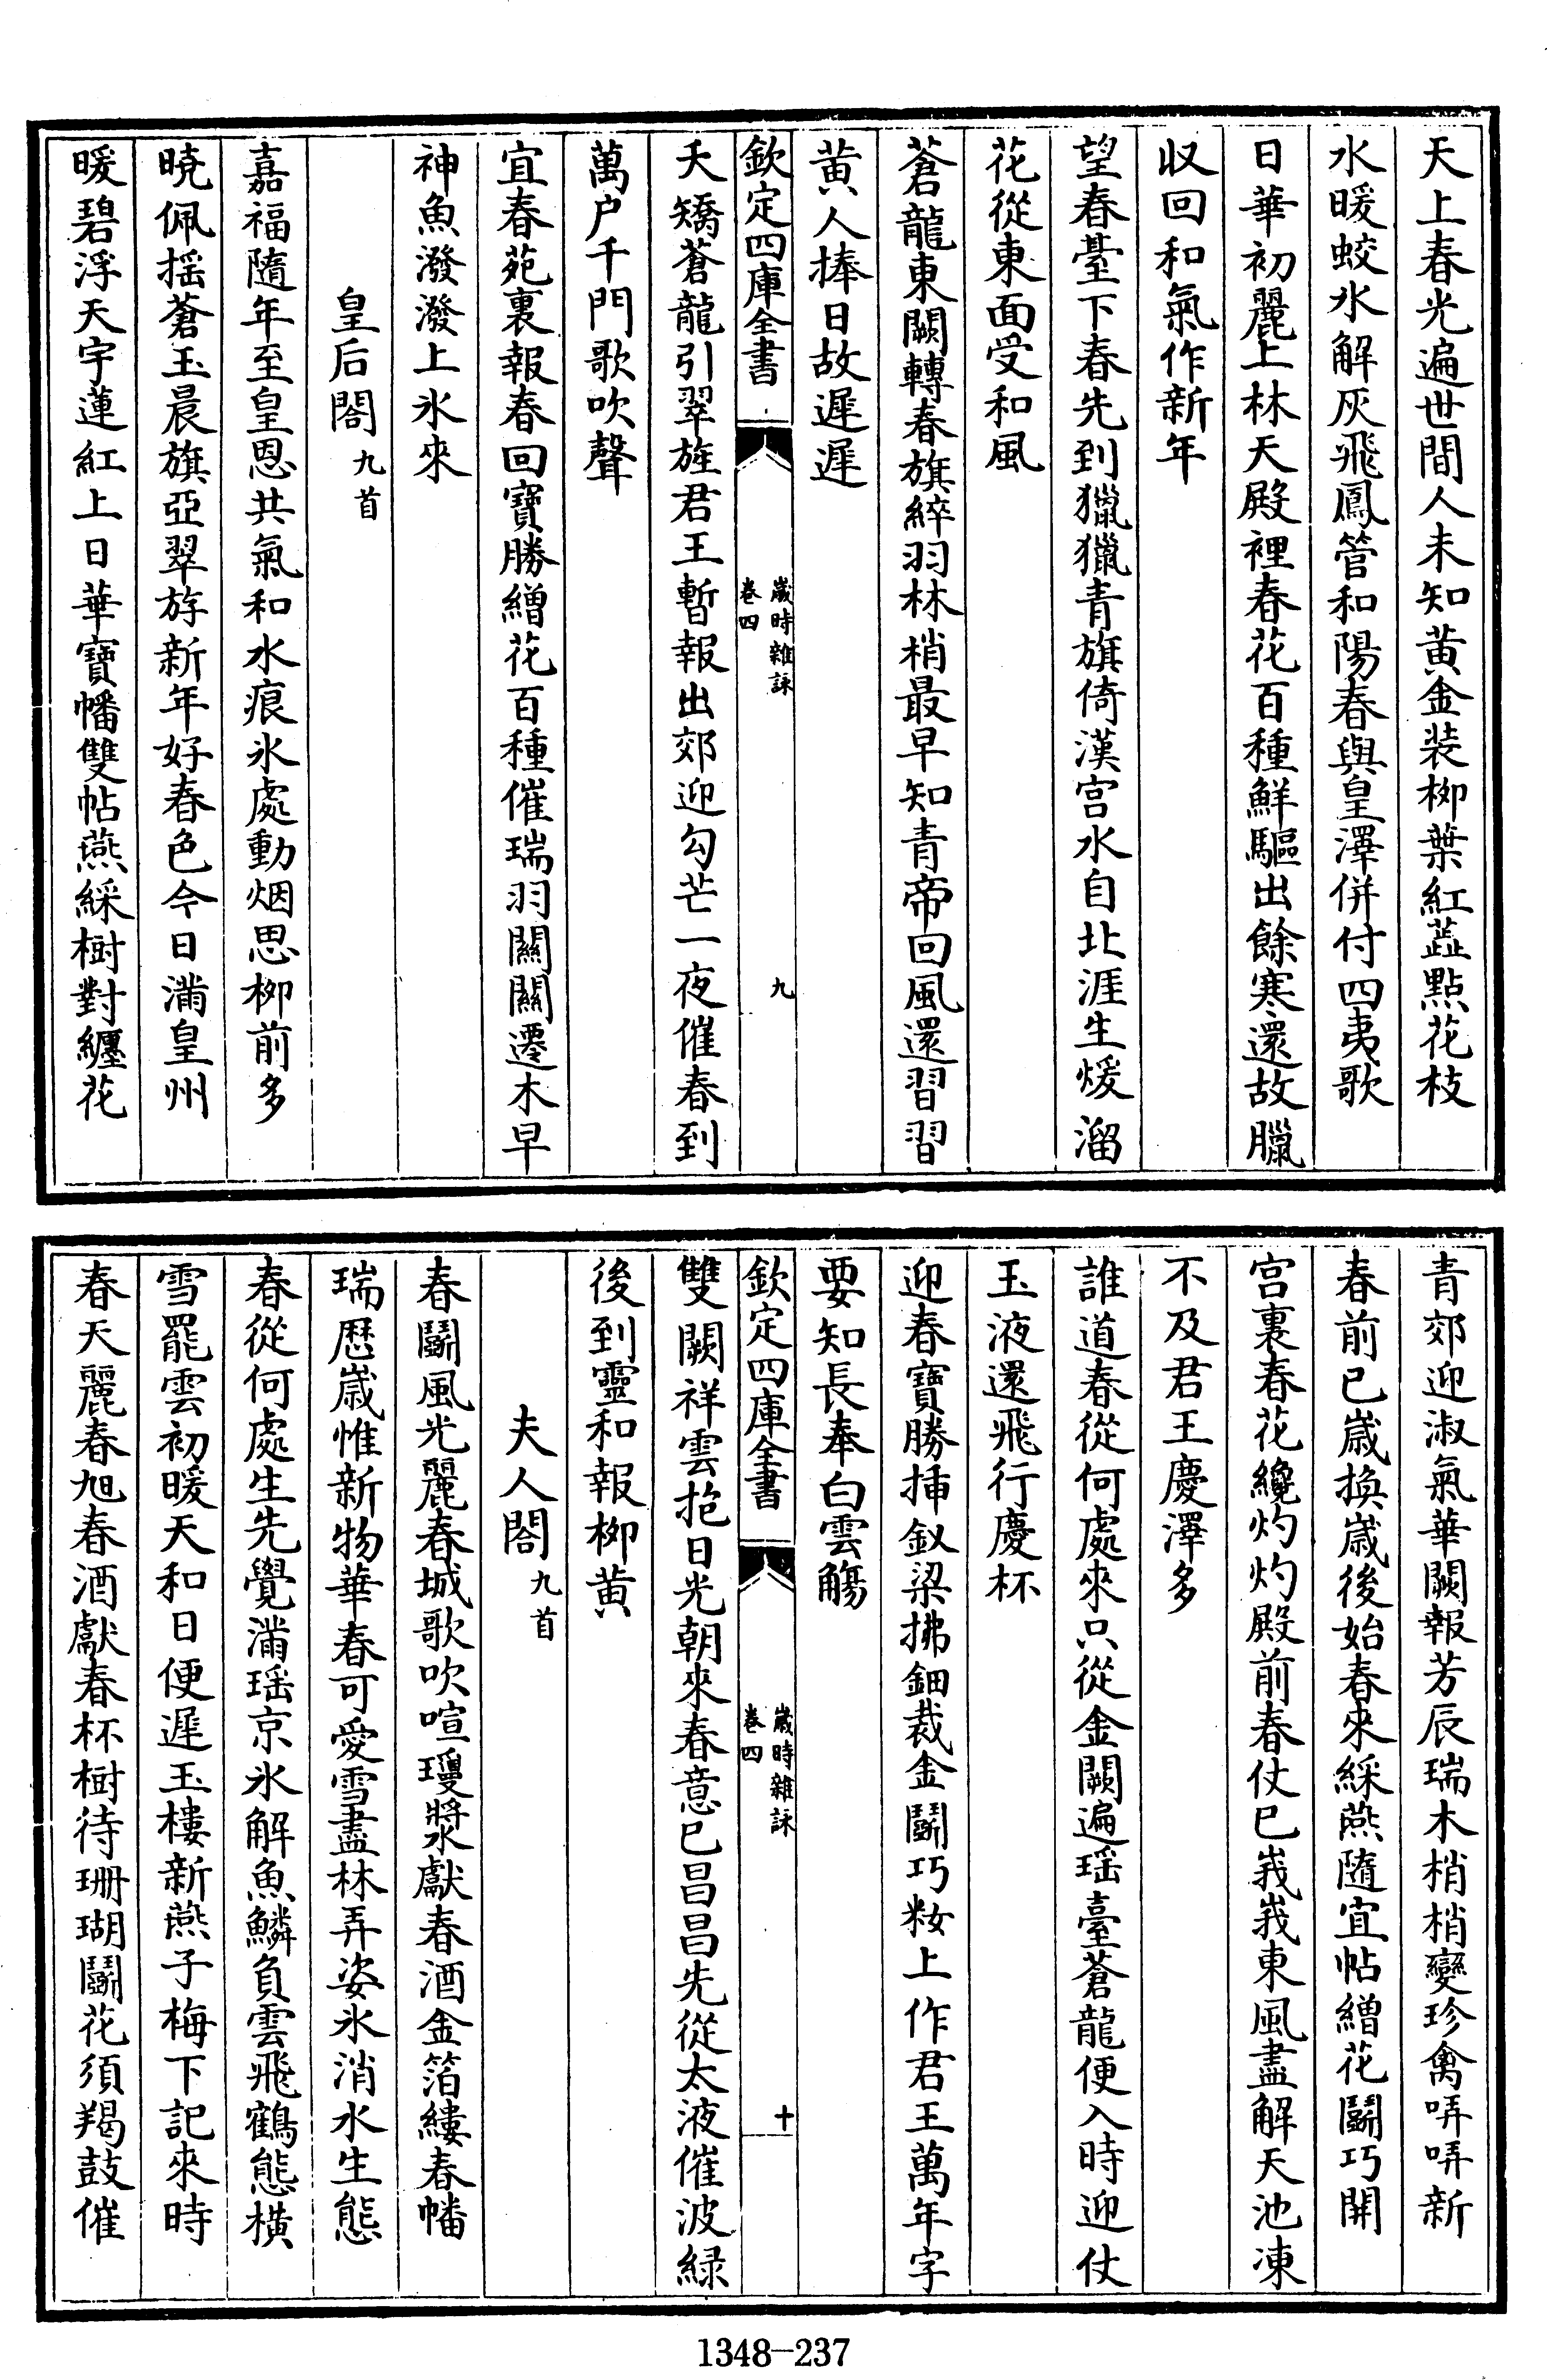 天上春光遍世間人未知黄金装栁葉紅蕋點花枝
水暖蛟水解灰飛鳳管和陽春與皇澤併付四夷歌
日華初麗上林天殿裡春花百種鮮驅出餘寒還故臘
収回和氣作新年
望春臺下春先到獵獵青旗倚漢宫水自北涯生煖溜
花從東面受和風
蒼龍東闕轉春旗綷羽林梢最早知青帝回風還習習
黄人捧日故遲遲
欽定四庫全書
歲時雜詠
卷四
九
夭矯蒼龍引翠旌君王暫報出郊迎勾芒一夜催春到
萬户千門歌吹聲
宜春苑裏報春回寶勝繒花百種催瑞羽關關遷木早
神魚潑潑上氷來
皇后閤九首
嘉福隨年至皇恩共氣和水痕氷處動烟思栁前多
曉佩揺蒼玉晨旗亞翠斿新年好春色今日滿皇州
暖碧浮天宇蓮紅上日華寶幡雙帖燕綵樹對纏花
青郊迎淑氣華闕報芳辰瑞木梢梢變珍禽哢哢新
春前已歲換歲後始春來綵燕隨宜帖繒花鬬巧開
宫裏春花纔灼灼殿前春仗已峩峩東風盡解天池凍
不及君王慶澤多
誰道春從何處來只從金闕遍瑶臺蒼龍便入時迎仗
玉液還飛行慶杯
迎春寶勝揷釵梁拂鈿裁金鬬巧粧上作君王萬年字
要知長奉白雲觴
欽定四庫全書
歲時雜詠
卷四
十
雙闕祥雲抱日光朝來春意已昌昌先從太液催波緑
後到靈和報栁黄
夫人閤九首
春鬬風光麗春城歌吹喧瓊漿獻春酒金箔縷春幡
瑞歴歲惟新物華春可愛雪盡林弄姿氷消水生態
春從何處生先覺滿瑶京氷解魚鱗負雲飛鶴態横
雪罷雲初暖天和日便遲玉樓新燕子梅下記來時
春天麗春旭春酒獻春杯樹待珊瑚鬬花須羯鼓催
1348-237